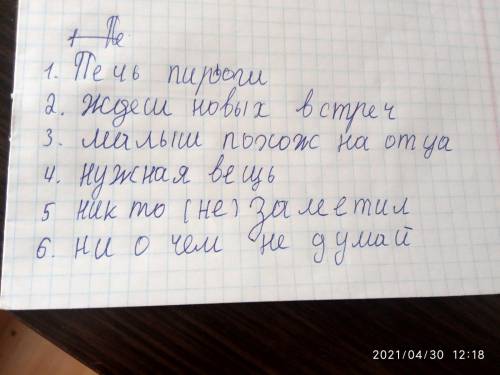 1. Печь пироги
2. Ждеш новых встреч
3. малыш похож на отца
4. нужная вещь
5 никто (не) заметил
6. ни о чем не думай
2021/04/30 12:18